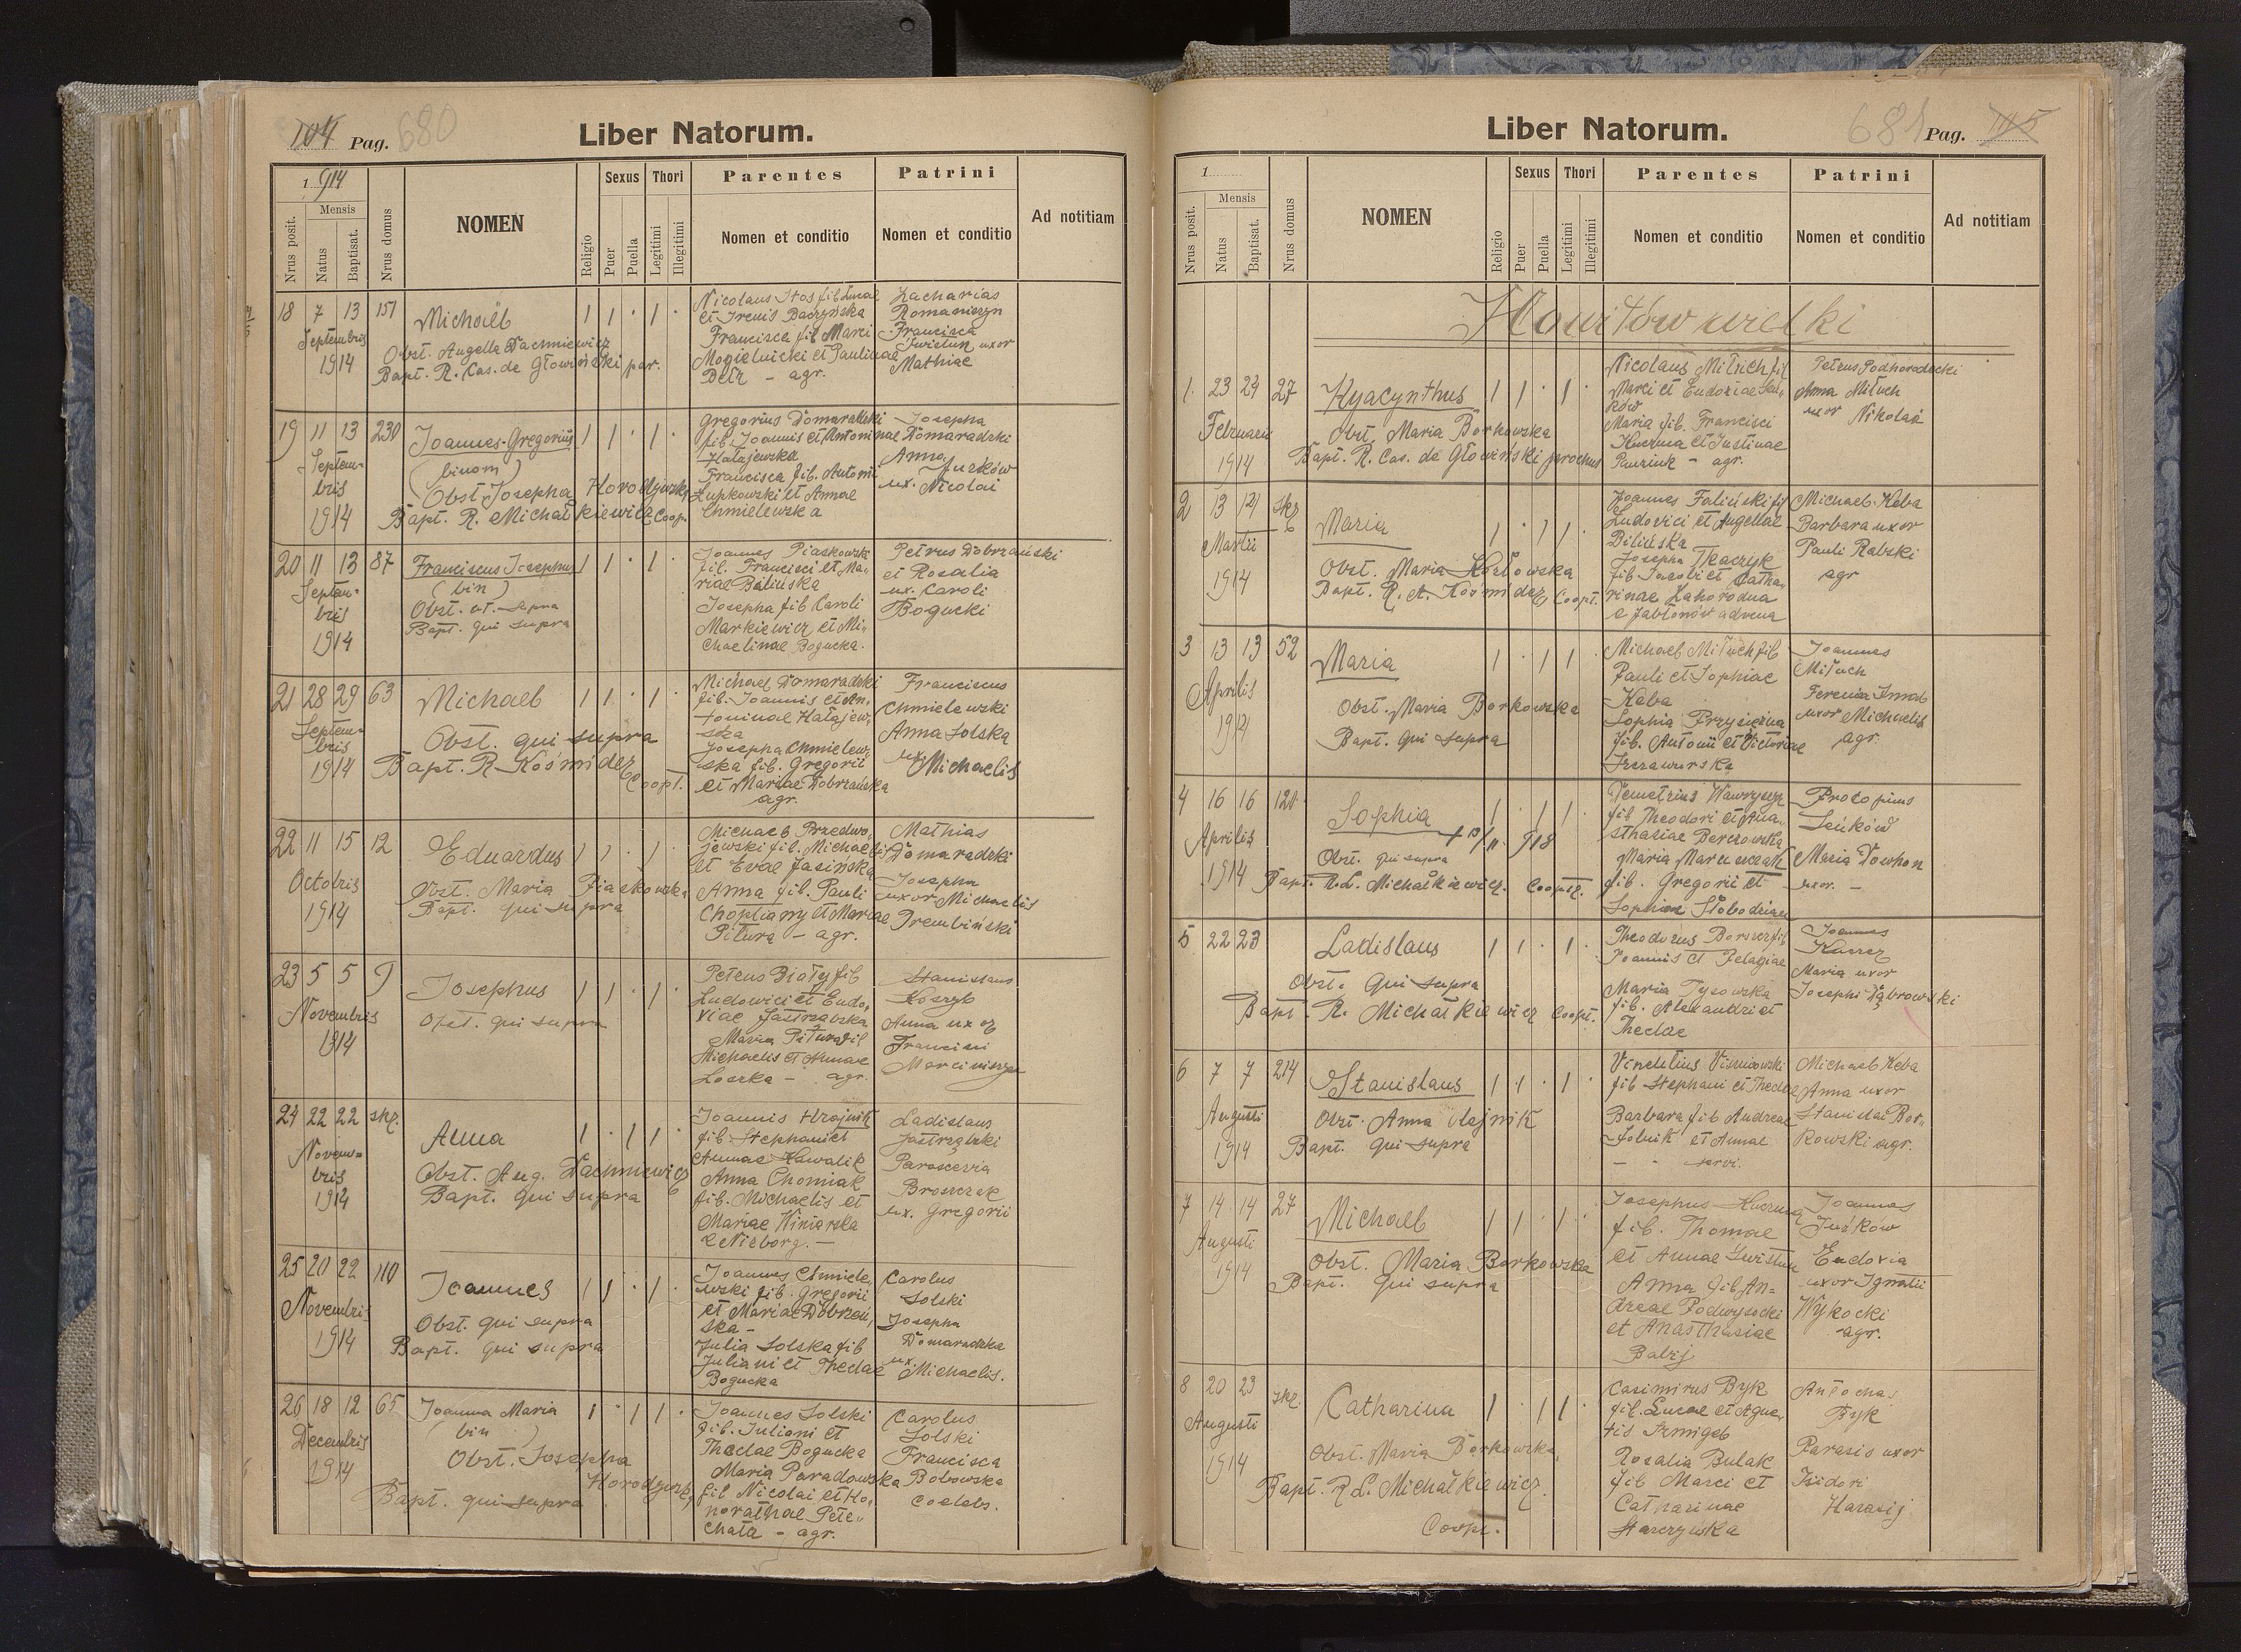 104 Pag. 680
Liber Natorum.
1 914
Nrus posit.
Mensis
Natus
Baptisat.
Nrus domus
NOMEN
Religio
Sexus
Puer
Puella
Thori
Legitimi
Illegitimi
Parentes
Nomen et conditio
Patrini
Nomen et conditio
Ad notitiam
18 7 13 151
Septembris
1914
Michaël
Obst. Angella Dachniewicz
Bapt. R. Cas. de Głowiński par.
1 1 · 1 ·
Nicolaus Stos fil. Lucae
et Irenis Baczyńska
Francisca fil. Marci
Mogielnicki et Paulinae
agr.
Zacharias
Romaniszyn
Francisca
Świstun uxor
Mathiae
19 11 13 230
Septem-
bris
1914
Joannes-Gregorius
(binom)
Obst. Josepha Horodyjewska
Bapt. R. Michałkiewicz Coop.
1 1 · 1 ·
Gregorius Domaradzki
fil. Joannis et Antoninae
Hałajewska
Francisca fil. Antoni
Łupkowski et Annae
Chmielewska
Josepha
Domaradzki
Anna
Juzków
ux. Nicolai
20 11 13 87
Septem-
bris
1914
Franciscus Josephus
(bin)
Obst. ut. supra
Bapt. qui supra
1 1 · 1 ·
Joannes Piaskowski
fil. Francisci et Ma-
riae Bilińska
Josepha fil Caroli
Markiewicz et Mi-
chaelinae Bogucka.
Petrus Dobrzański
et Rosalia
ux. Caroli
Bogucki
21 28 29 63
Septem-
bris
1914
Michael
Obst. qui supra
Bapt. R. Kośmider
Coopt.
1 1 · 1 ·
Michael Domaradski
fil. Joannis et An-
toninae Hałajew-
ska
Josepha Chmielew-
ska fil. Gregorii
et Mariae Dobrzańska
agr.
Franciscus
Chmielewski
Anna Solska
ux. Michaelis
22 11 15 12
Octobris
1914
Eduardus
Obst. Maria Piaskowska
Bapt. qui supra
1 1 · 1 ·
Michael Przedwo-
jewski fil. Michaelis
et Evae Jasińska
Anna fil. Pauli
Choptiany et Mariae
Pitura - agr.
Mathias
Domaradzki
Josepha
uxor Michaelis
Drembiński
23 5 5 9
Novembris
1914
Josephus
Obst. qui supra
1 1 · 1 ·
Petrus Biały fil
Ludovici et Eudo-
xiae Jastrzabska
Maria Pitura fil
Michaelis et Annae
Loszka - agr.
Stanislaus
Koszyl
Anna uxor
Francisci
Marciniszyn
24 22 22 skł.
Novem-
bris
1914
Anna
Obst. Aug. Dachniewicz
Bapt. qui supra
1 · 1 1 ·
Joannis Hrajnik
fil. Stephani et
Annae Kowalik
Anna Chomiak
fil. Michaelis et
Mariae Winiarska
e Niżborg.-
Ladislaus
Jastrząbski
Parascevia
Broszczak
ux. Gregorii
25 20 22 110
Novembris
1914
Joannes
Obst. qui supra
Bapt. qui supra
1 1 · 1 ·
Joannes Chmiele-
wski fil. Gregorii
et Mariae Dobrzań-
ska -
Julia Solska fil
Juliani et Theclae
Bogucka
Carolus
Solski
Josepha
Domaradzka
ux. Michaelis.
26 18 12 65
Decembris
1914
Joanna Maria
(bin)
Obst. Josepha
Horodyjewska
Bapt. qui supra
1 · 1 1 ·
Joannes Solski
fil. Juliani et
Theclae Bogucka
Maria Paradowska
fil Nicolai et Ho-
norathae Pete-
chata - agr.
Carolus
Solski
Francisca
Bobowska
Coelebs.
681 Pag. 105
Liber Natorum.
1
Nrus posit.
Mensis
Natus
Baptisat.
Nrus domus
NOMEN
Religio
Sexus
Puer
Puella
Thori
Legitimi
Illegitimi
Parentes
Nomen et conditio
Patrini
Nomen et conditio
Ad notitiam
Howiłów wielki
1. 23 24 27
Februarii
1914
Hyacynthus
Obst. Maria Borkowska
Bapt. R. Cas. de Głowiński parochus
1 1 · 1 ·
Nicolaus Miluch fil
Marci et Eudoxiae Sen-
ków
Maria fil. Francisci
Kuczma et Justinae
agr.
Petrus Podhorodecki
Anna Miluch
uxor Nikolaa
2 13 14 skł
Martii
1914
Maria
Obst. Maria Kozłowska
Bapt. R. A. Kośmider Coopt.
1 · 1 1 ·
Joannes Faliński fil
Ludovici et Angellae
Bilińska
Josepha Tkaczyk
fil Jacobi et Catha-
rinae Zahorodna
e Jabłonów advena
Michael Keba
Barbara uxor
Pauli Rabski
agr
3 13 13 52
Aprilis
1914
Maria
Obst. Maria Borkowska
Bapt. qui supra
1 · 1 1 ·
Michael Miluch fil
Pauli et Sophiae
Keba
Sophia Przysiężna
fil. Antonii et Victoriae
Joannes
Miluch
uxor Michaelis
agr.
4 16 16 120
Aprilis
1914
Sophia
Obst. qui supra
Bapt. R. L. Michałkiewicz. Coopt.
1 · 1 1 ·
Demetrius Wawryszyn
fil Theodori et Ana-
sthasiae Berezowska
Maria Marcinczak
fil. Gregorii et
Sophiae Słobodzian
Procopius
Seńków
Maria Dowhon
uxor. -
5 22 23
Ladislaus
Obst. qui supra
Bapt. R. Michałkiewicz Coopt.
1 1 · 1 ·
Theodorus Borszcz fil
Joannis et Pelagiae
Maria Tysowska
fil. Alexandri et
Theclae
Joannes
Maria uxor
Josephi Dąbrowski
6 7 7 214
Augusti
1914
Stanislaus
Obst. Anna Olejnik
Bapt. qui supra
1 1 · 1 ·
fil Stephani et Theclae
Barbara fil Andreae
Solnik et Annae
- - servi.
Michael Keba
Anna uxor
Stanislai Bor-
kowski agr.
7 14 14 27
Augusti
1914
Michael
Obst. Maria Borkowska
Bapt. qui supra
1 1 · 1 ·
Josephus Kuczma
fil. Thomae
et Annae Świstun
Anna fil An-
dreae Podwysocki
et Anasthasiae
Balij
Joannes
Juzków
Eudoxia
uxor Ignatii
Wykocki
agr.
8 20 23 skł.
Augusti
1914
Catharina
Obst. Maria Borkowska
Bapt. R L. Michałkiewicz.
Coopt.
1 · 1 1 ·
Casimirus Byk
fil. Lucae et Agne-
tis Szmigel
Rosalia Bulak
fil Marci et
Catharinae
Starczewska
Antochas
Byk
Parasis uxor
Isidori
Harasij